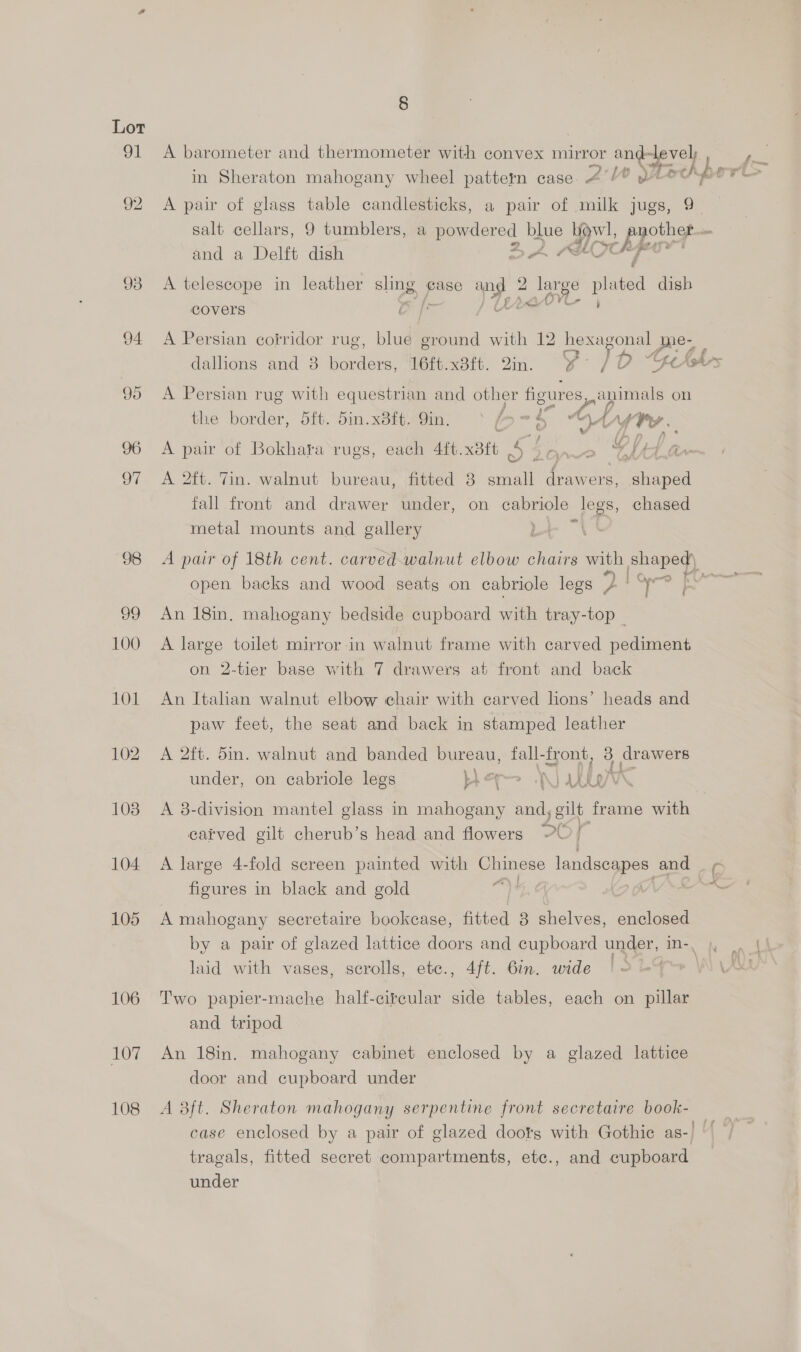 8
Lot
91 A barometer and thermometer with convex mirror and level
in Sheraton mahogany wheel pattern case
92 A pair of glass table candlesticks, a pair of milk jugs, 9
salt cellars, 9 tumblers, a powdered blue bowl, another
and a Delft dish
93 A telescope in leather sling case and 2 large plated dish
covers
94 A Persian corridor rug, blue ground with 12 hexagonal me-
dallions and 3 borders, 16ft.x3ft. 2in.
95 A Persian rug with equestrian and other figures, animals on
the border, 5ft. 5in.x3ft. 9in.
96 A pair of Bokhara rugs, each 4ft.x3ft
97 A 2ft. 7in. walnut bureau, fitted 3 small drawers, shaped
fall front and drawer under, on cabriole legs, chased
metal mounts and gallery
98 A pair of 18th cent. carved walnut elbow chairs with shaped
open backs and wood seats on cabriole legs
99 An 18in. mahogany bedside cupboard with tray-top
100 A large toilet mirror in walnut frame with carved pediment
on 2-tier base with 7 drawers at front and back
101 An Italian walnut elbow chair with carved lions' heads and
paw feet, the seat and back in stamped leather
102 A 2ft. 5in. walnut and banded bureau, fall-front, 3 drawers
under, on cabriole legs
103 A 3-division mantel glass in mahogany and gilt frame with
carved gilt cherub's head and flowers
104 A large 4-fold screen painted with Chinese landscapes and
figures in black and gold
105 A mahogany secretaire bookcase, fitted 3 shelves, enclosed
by a pair of glazed lattice doors and cupboard under, in-
laid with vases, scrolls, etc., 4ft. 6in. wide
106 Two papier-mache half-circular side tables, each on pillar
and tripod
107 An 18in. mahogany cabinet enclosed by a glazed lattice
door and cupboard under
108 A 3ft. Sheraton mahogany serpentine front secretaire book-
case enclosed by a pair of glazed doors with Gothic as-
tragals, fitted secret compartments, etc., and cupboard
under